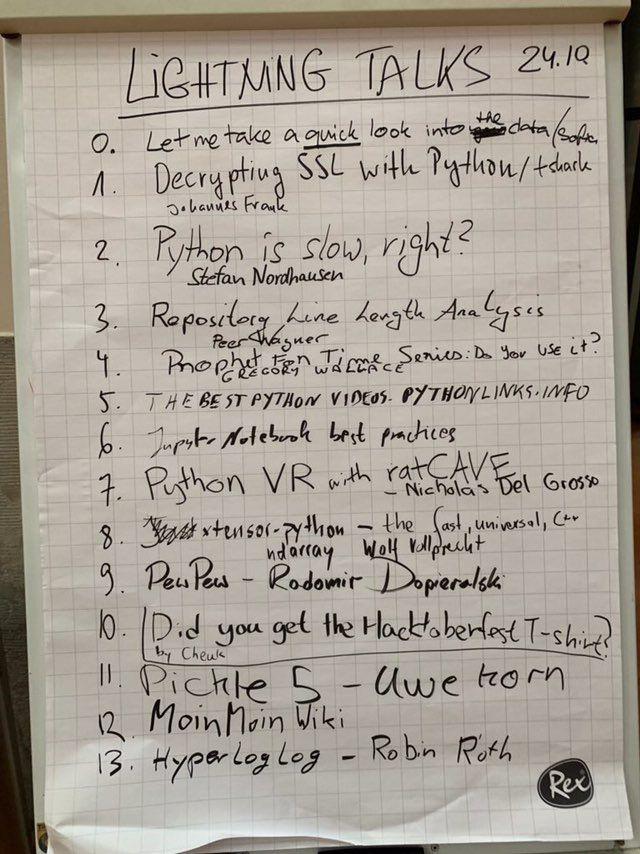 LIGHTNING TALKS 24.10
0. Let me take a quick look into the data/
1. Decrypting SSL with Python/tshark
Johannes Frank
2. Python is slow, right?
Stefan Nordhausen
3. Repository Line Length Analysis
Peer Wagner
4. Prophet For Time Series: Do you use it?
GREGORY WALLACE
5. THE BEST PYTHON VIDEOS. PYTHONLINKS.INFO
6. Jupyter Notebook best practices
7. Python VR with ratCAVE
- Nicholas Del Grosso
8. xtensor-python - the fast, universal, C++
ndarray Wolf Vollprecht
9. PewPew - Radomir Dopieralski
10. Did you get the Hacktoberfest T-shirt?
by Cheuk
11. Pickle 5 - Uwe Korn
12 MoinMoin Wiki
13. HyperLogLog - Robin Roth
Rex